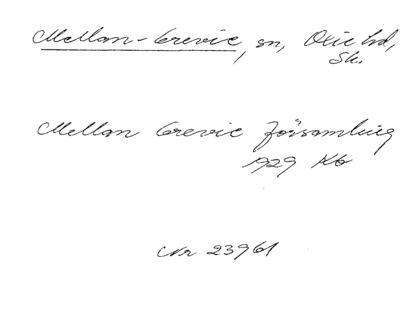 Mellan-Grevie, sn, Oxie hd,
Sk.
Mellan Grevie församling
1929 Kb
Nr 23961